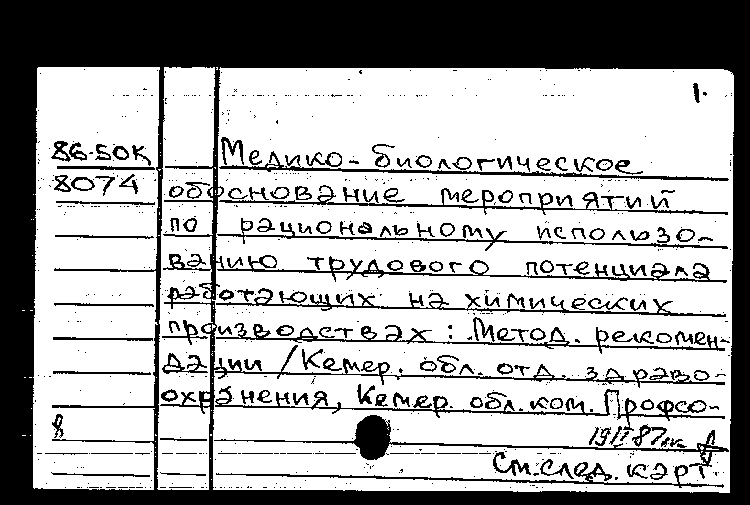 1.
86-50К Медико-биологическое
8074 обоснование мероприятий
по рациональному использо-
ванию трудового потенциала
работающих на химических
производствах: Метод. рекомен-
дации / Кемер. обл. отд. здраво-
охранения, Кемер. обл. ком. Профсо-
См. след. карт.